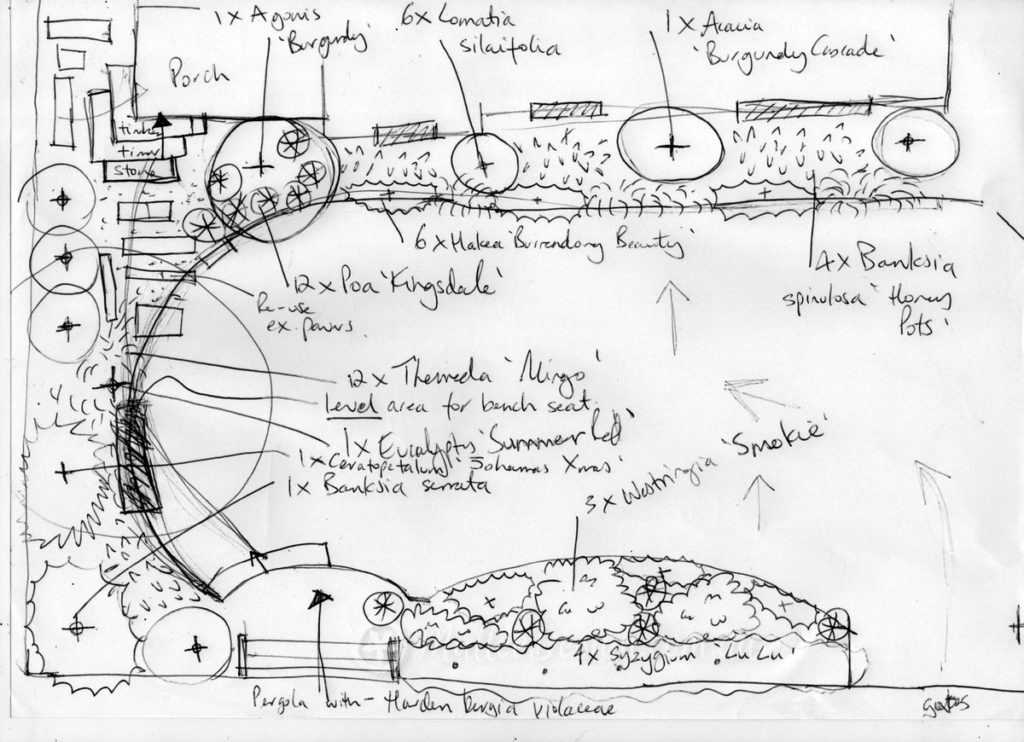 1 x Agonis
'Burgundy'
6x Lomatia
silaifolia
1 x Acacia
'Burgundy Cascade'
Porch
timber
timber
Stone
6 x Hakea 'Burrendong Beauty'
4 x Banksia
spinulosa 'Honey
Pots'
12 x Poa 'Kingsdale'
Re-use
ex. pavers
12 x Themeda 'Mingo'
level area for bench seat.
1 x Eucalyptus 'Summer Red'
1 x Ceratopetalum 'Johannas Xmas'
1 x Banksia serrata
3 x Westringia 'Smokie'
4x Syzygium 'Lulu'
Pergola with - Hardenbergia violaceae